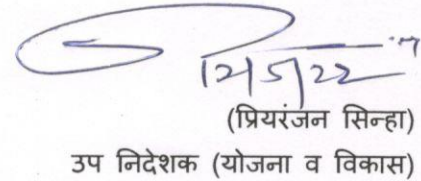 12/5/22
(प्रियरंजन सिन्हा)
उप निदेशक (योजना व विकास)